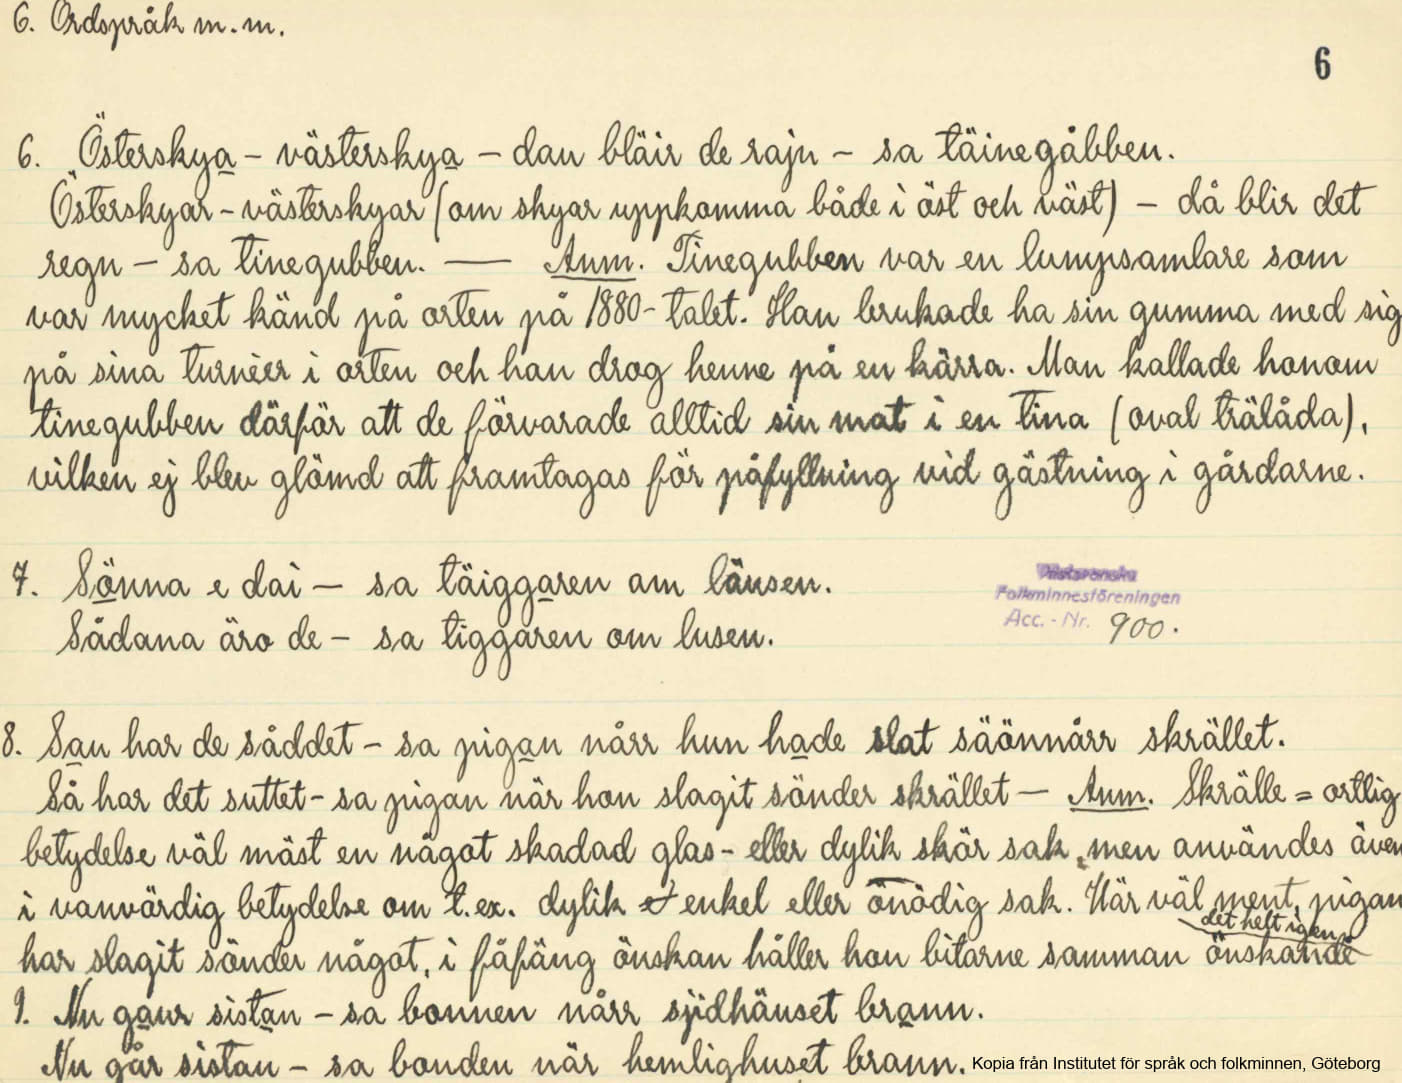 6. Ordspråk m.m.
6
6. Österskya - västerskya - dau bläir de rajn - sa täinegåbben.
Österskyar - västerskyar (om skyar uppkomma både i öst och väst) - då blir det
regn - sa tinegubben. — Anm. Tinegubben var en lumpsamlare som
var mycket känd på orten på 1880-talet. Han brukade ha sin gumma med sig
på sina turnéer i orten och han drog henne på en kärra. Man kallade honom
tinegubben därför att de förvarade alltid sin mat i en tina (oval trälåda),
vilken ej blev glömd att framtagas för påfyllning vid gästning i gårdarne.
7. Sönna e dai - sa täiggaren am läusen.
Sådana äro de - sa tiggaren om lusen.
Västsvenska
Folkminnesföreningen
Acc. - Nr. 900.
8. Sau har de såddet - sa pigan nårr hun hade slat säönnårr skrället.
Så har det suttet - sa pigan när hon slagit sönder skrället — Anm. Skrälle = ortlig
betydelse väl mäst en något skadad glas- eller dylik skör sak, men användes även
i vanvördig betydelse om t.ex. dylik enkel eller onödig sak. Här väl ment, pigan
det helt igen
har slagit sönder något, i fåfäng önskan håller hon bitarne samman önskande
9. Nu gaur sistan - sa bonnen nårr sjidhäuset brann.
Nu går sistan - sa bonden när hemlighuset brann.
Kopia från Institutet för språk och folkminnen, Göteborg